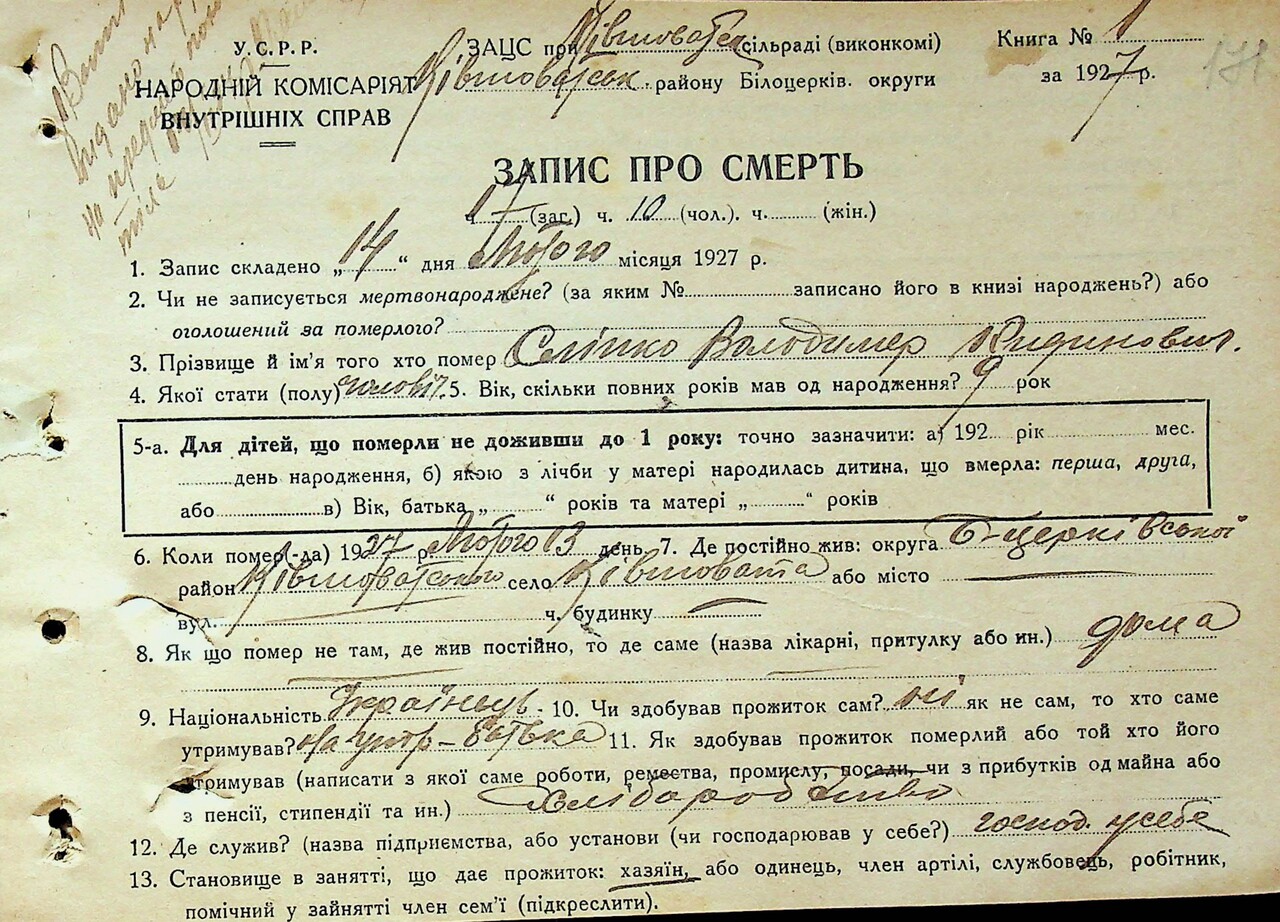 видано на
на предмет
тіла
У.С.Р.Р.
НАРОДНІЙ КОМІСАРІЯТ
ВНУТРІШНІХ СПРАВ
ЗАЦС при Ківшоватск сільраді (виконкомі)
Ківшоватськ. району Білоцерків. округи
Книга № 1
за 1927 р.
171
ЗАПИС ПРО СМЕРТЬ
ч 17 (заг.) ч. 10 (чол.). ч. (жін.)
1. Запис складено „14“ дня Лютого місяця 1927 р.
2. Чи не записується мертвонароджене? (за яким № записано його в книзі народжень?) або
оголошений за померлого?
3. Прізвище й ім'я того хто помер Сліпко Володимер
4. Якої стати (полу) чоловіч. 5. Вік, скільки повних років мав од народження? 9 рок
5-а. Для дітей, що померли не доживши до 1 року: точно зазначити: а) 192 рік мес.
день народження, б) якою з лічби у матері народилась дитина, що вмерла: перша, друга,
або в) Вік, батька „ “ років та матері „ “ років
6. Коли помер(-ла) 1927 р. Лютого 13 день 7. Де постійно жив: округа Б-церківської
район Ківшоватського село Ківшовата або місто —
вул. ч. будинку —
8. Як що помер не там, де жив постійно, то де саме (назва лікарні, притулку або ин.) дома
9. Національність Українець. 10. Чи здобував прожиток сам? ні як не сам, то хто саме
утримував? на утр-батька 11. Як здобував прожиток померлий або той хто його
утримував (написати з якої саме роботи, ремества, промислу, посади, чи з прибутків од майна або
з пенсії, стипендії та ин.) Хліборобство
12. Де служив? (назва підприємства, або установи (чи господарював у себе?) господ. у себе
13. Становище в занятті, що дає прожиток: хазяїн, або одинець, член артілі, службовець, робітник,
помічний у зайнятті член сем'ї (підкреслити).